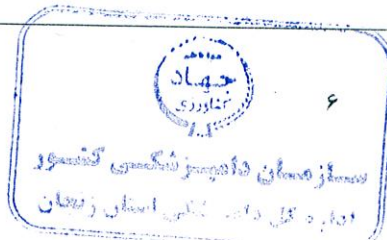 وزارت
جهاد
کشاورزی
۶
سازمان دامپزشکی کشور
اداره کل دامپزشکی استان زنجان